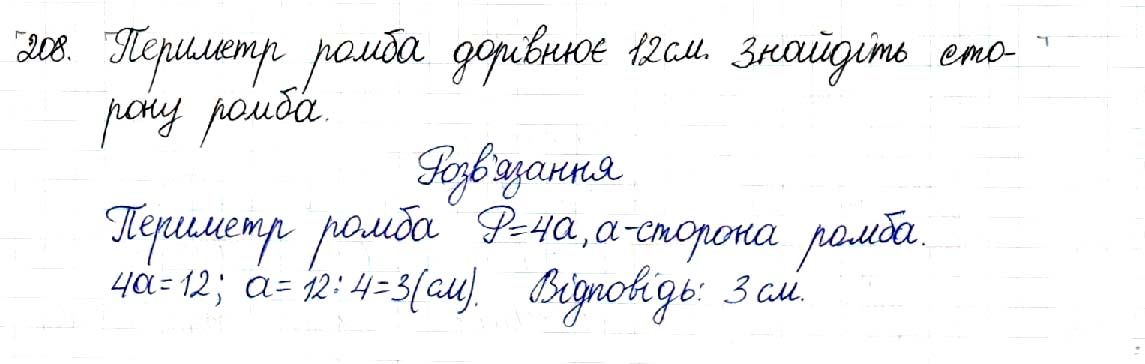 208. Периметр ромба дорівнює 12 см. Знайдіть сто-
рону ромба.
Розв'язання
Периметр ромба P=4a, a-сторона ромба.
4a=12; a=12:4=3(см). Відповідь: 3 см.